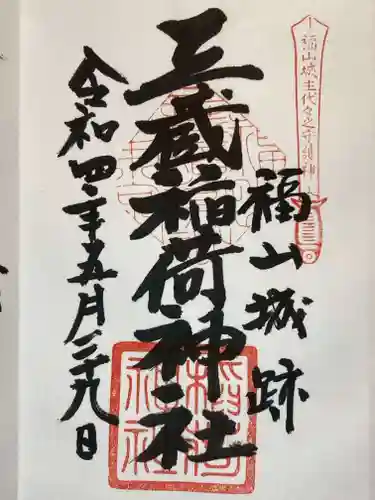 福山城主代々之守護神
福山城跡
三蔵稲荷神社
令和四年五月二十九日